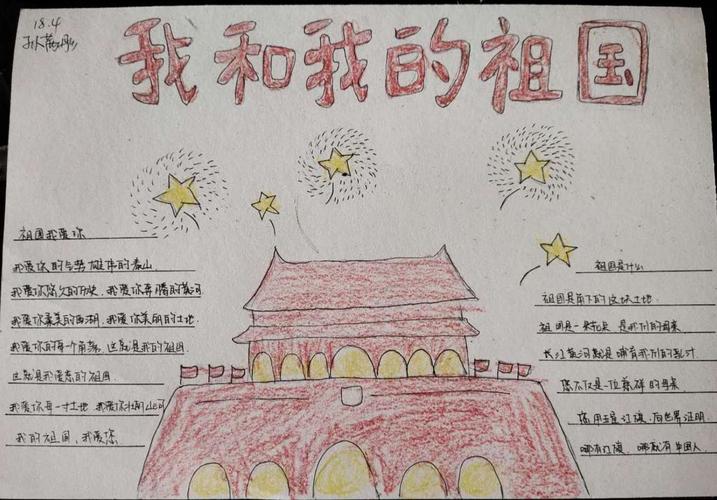 18.4
我和我的祖国
祖国我爱你
我爱你的气势雄伟的泰山
我爱你悠久的历史 我爱你奔腾的黄河
我爱你柔美的西湖 我爱你美丽的土地
我爱你的每一个角落 这就是我的祖国
这就是我爱着的祖国
我爱你每一寸土地 我爱你壮的山河
我的祖国，我爱您
祖国是什么
祖国是脚下的这块土地
祖国是一 是我们的母亲
长江黄河就是哺育我们的乳汁
您不仅是一位慈祥的母亲
您用五星红旗 向世界证明
哪有红旗 哪就有中国人